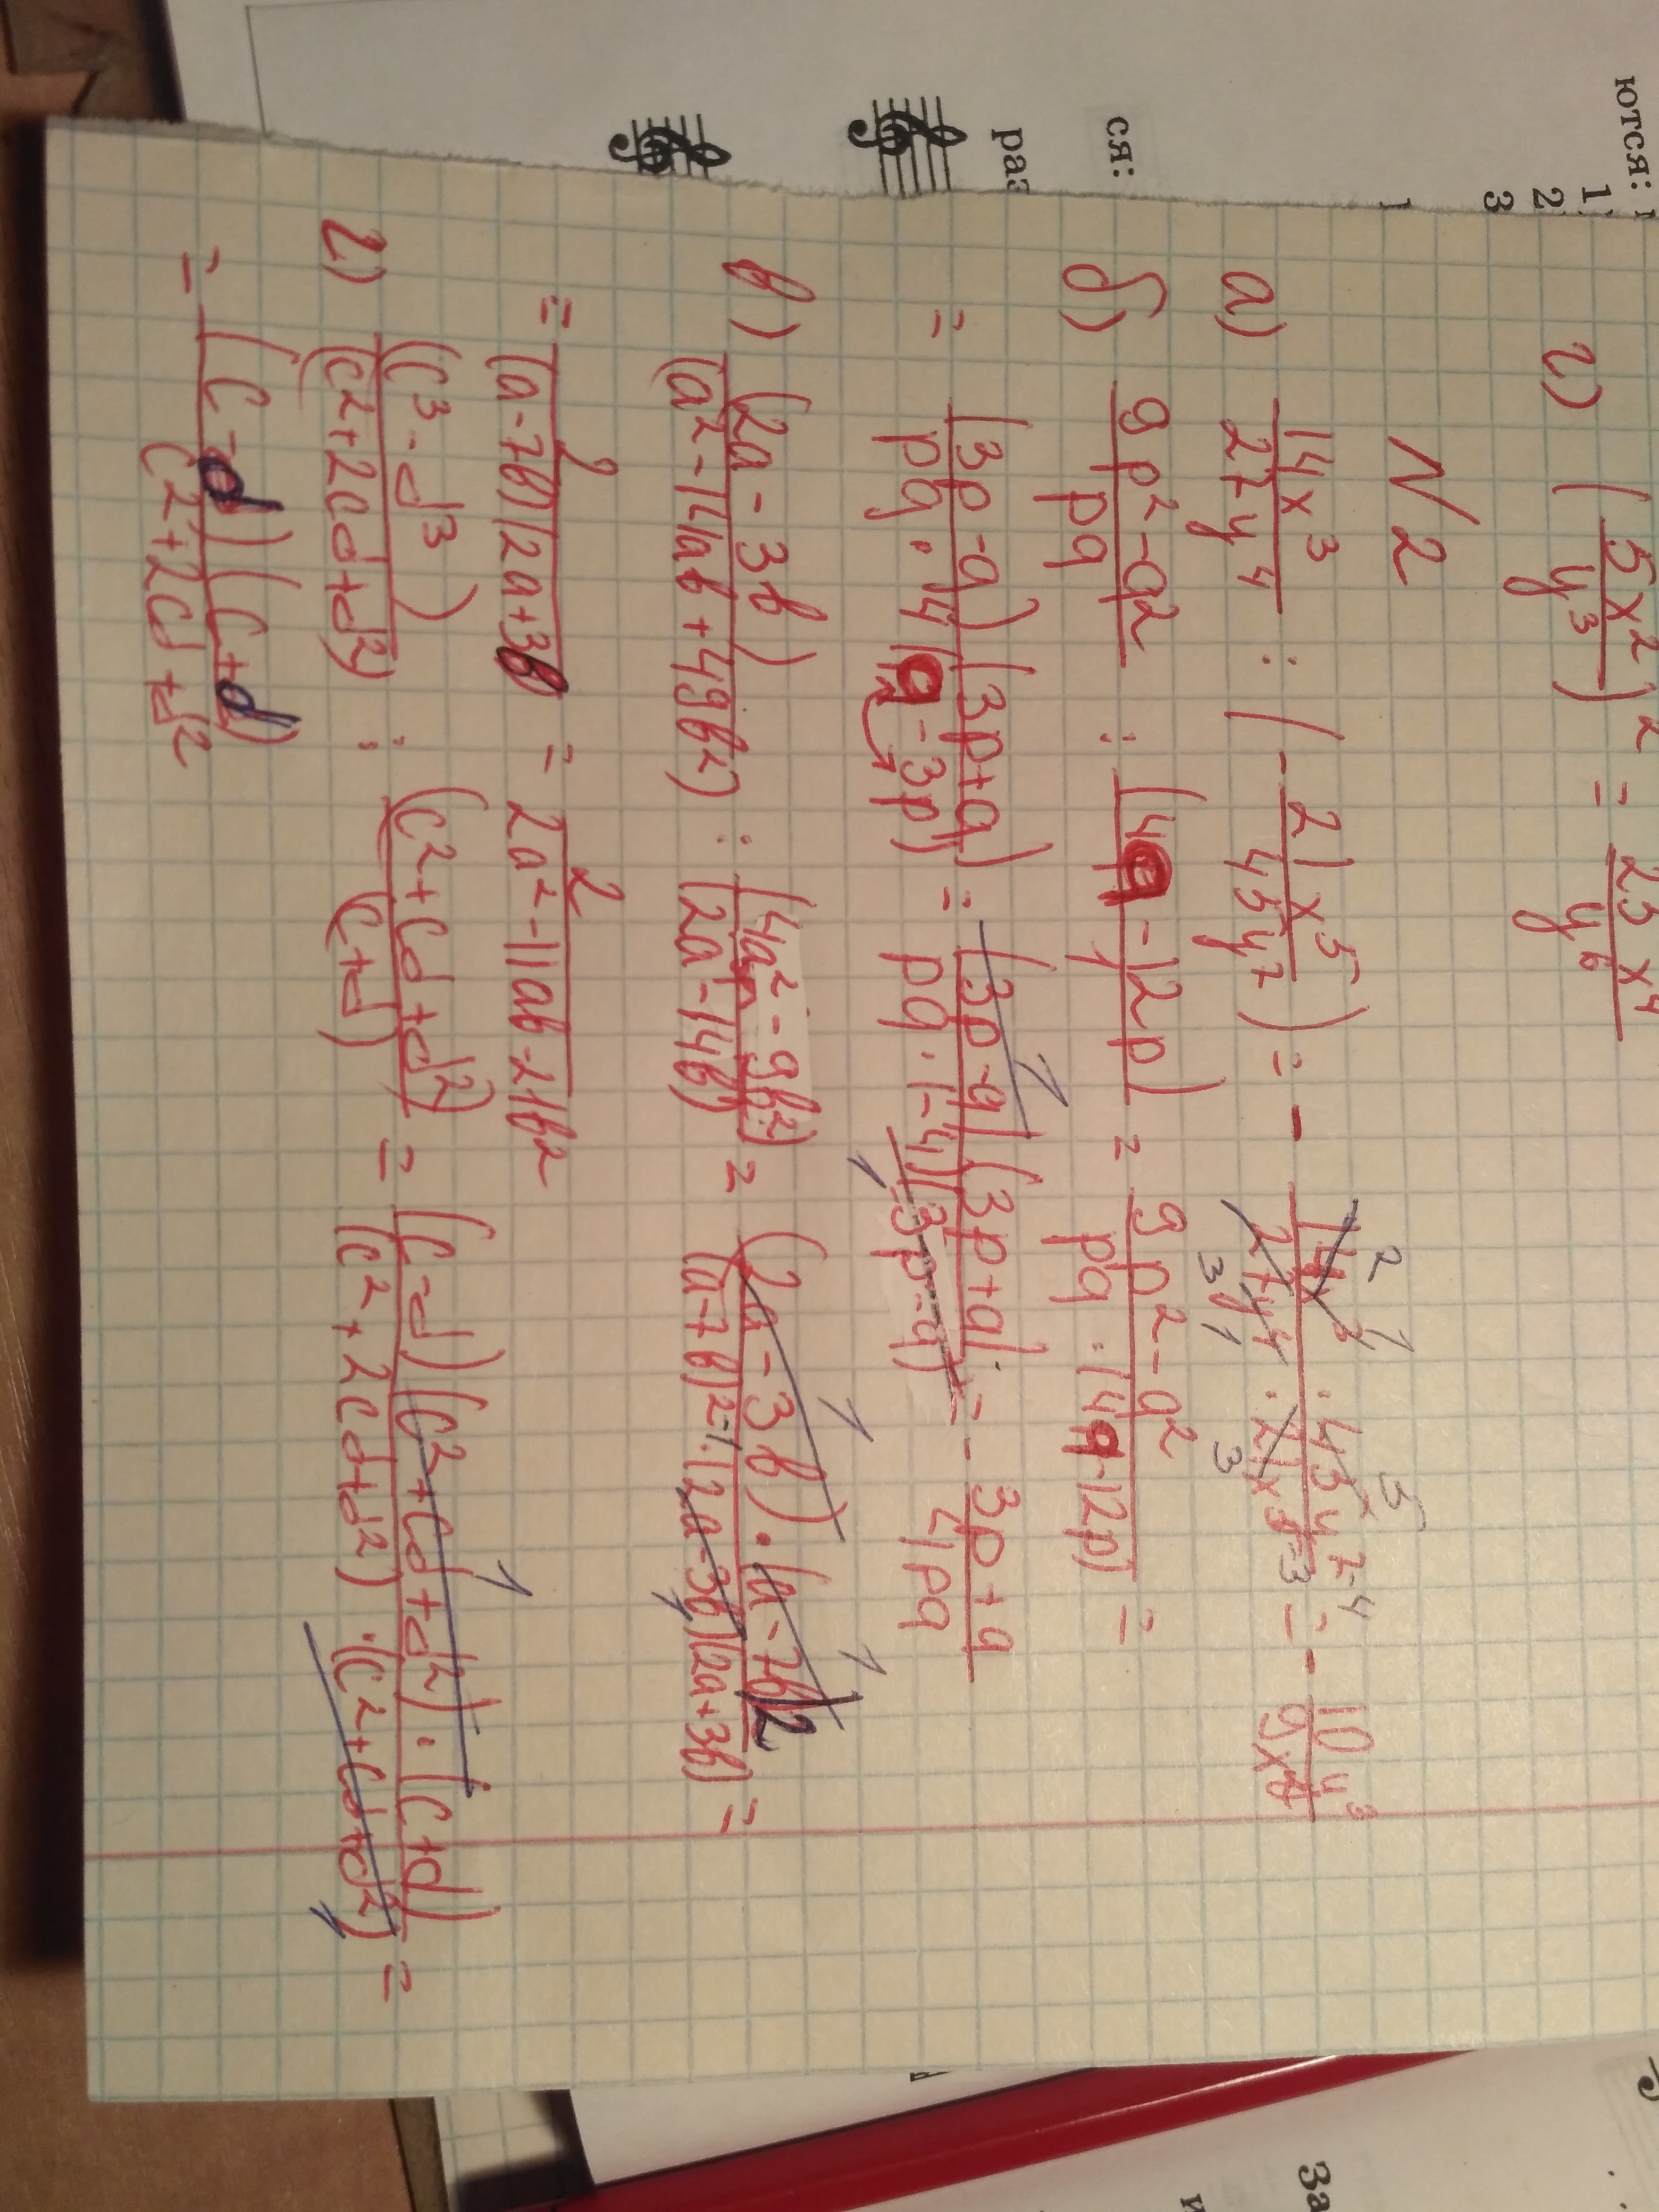 ются:
1.
2
3
ся:
раз
г) (5x²/y³)² = 25x⁴/y⁶
N2
а) 14x³/27y⁴ : (-21x⁵/45y⁷) = - 14x³ · 45y⁷⁻⁴/27y⁴ · 21x⁵⁻³ = - 10y³/9x²
б) 9p²-q²/pq : (4q-12p)/1 = 9p²-q²/pq·(4q-12p) =
= (3p-q)(3p+q)/pq·4(q-3p) = (3p-q)(3p+q)/pq·(-4)(3p-q) = - 3p+q/4pq
в) (2a-3b)/(a²-14ab+49b²) : (4a²-9b²)/(2a-14b) = (2a-3b)·(a-7b)2/(a-7b)²⁻¹·(2a-3b)(2a+3b) =
= 2/(a-7b)(2a+3b) = 2/2a²-11ab-21b²
г) (c³-d³)/(c²+2cd+d²) : (c²+cd+d²)/(c+d) = (c-d)(c²+cd+d²)·(c+d)/(c²+2cd+d²)·(c²+cd+d²) =
= (c-d)(c+d)/c²+2cd+d²
За
и